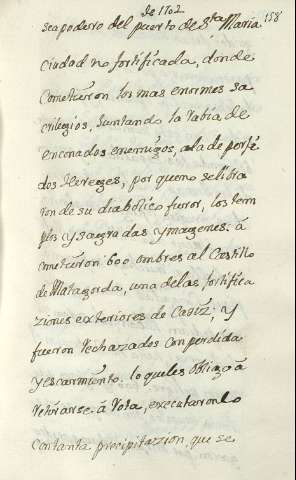 de 1702
158
se apodero del puerto de Sta. Maria
Ciudad no fortificada, donde
Cometieron los mas enormes sa
crilegios, Juntando la rabia de
enconados enemigos, a la de perfi
dos Hereges, por que no se libra
ron de su diabolico furor, los tem
plos y sagradas ymagenes. á
cometieron 600 ombres al Castillo
de Matagorda, una de las fortifica
ziones exteriores de Cadiz; y
fueron rechazados con perdida
y escarmiento. lo que les obligó á
retirarse á Rota, executaronlo
con tanta precipitazion, que se